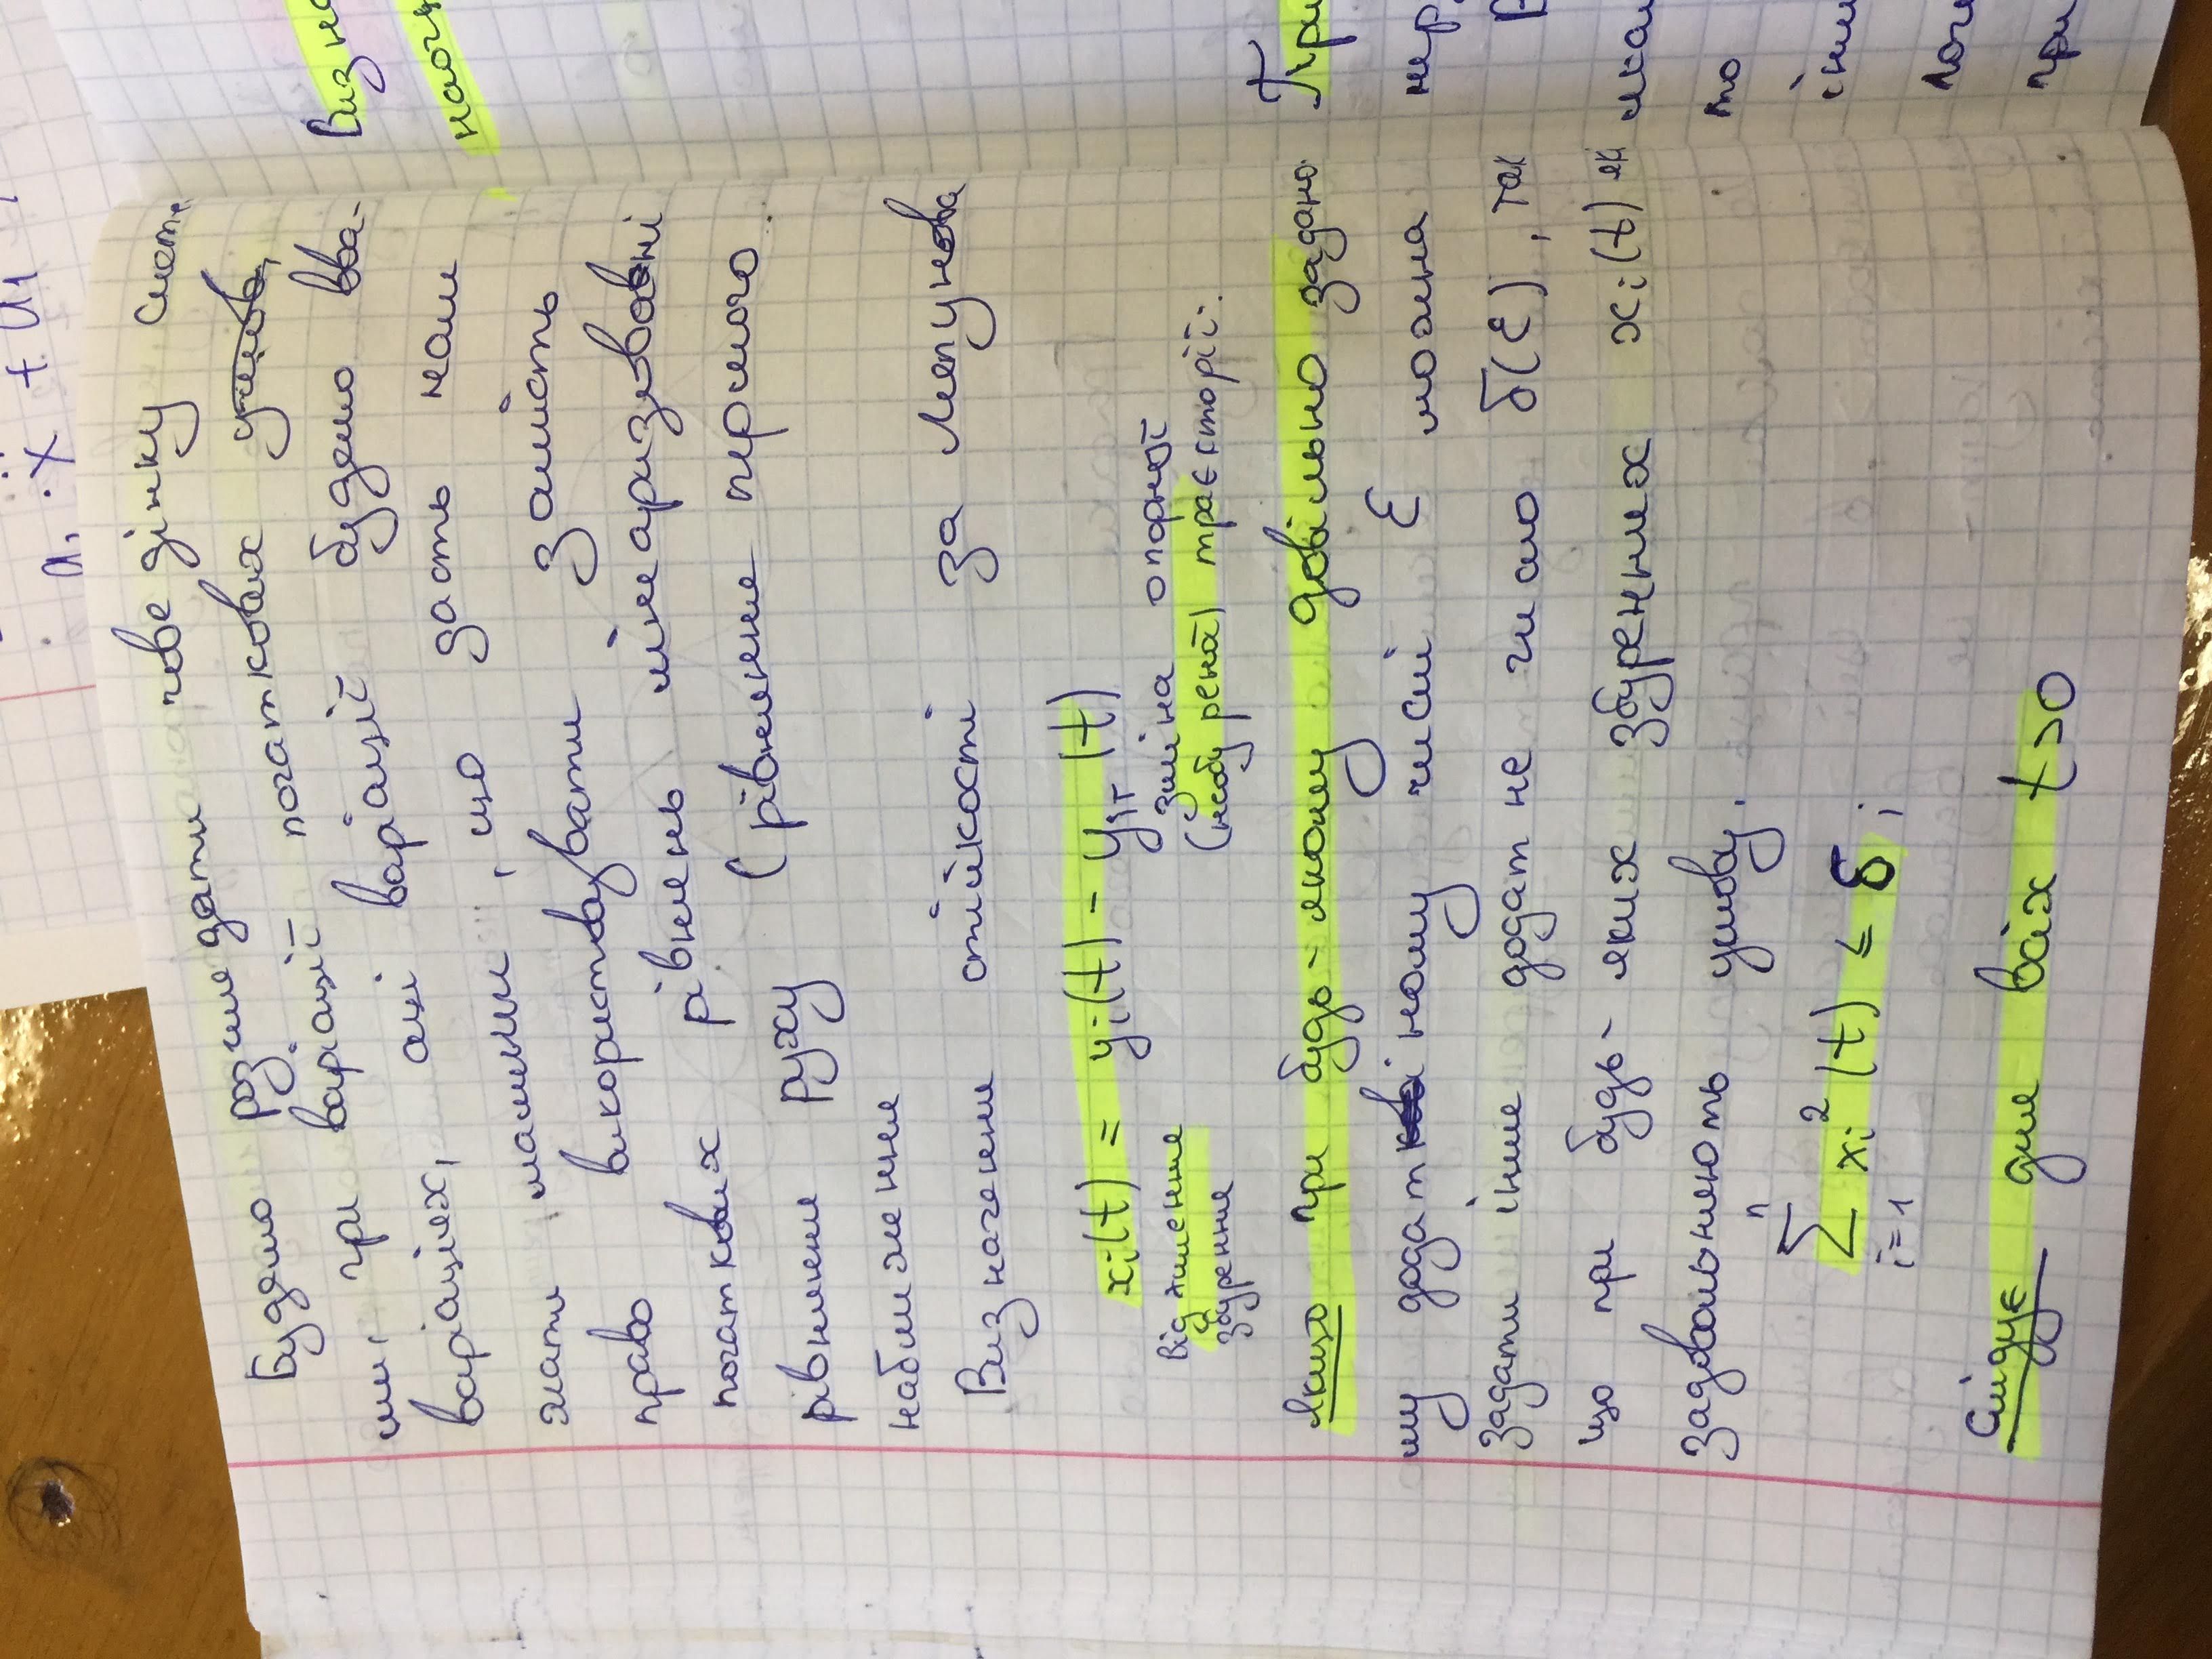 a₁ · x + a₁
Будемо розглядати поведінку систе-
ми, при варіації початкових умов,
варіаціях, ці варіації будемо вва-
жати малими, що дасть нам
право використовувати замість
початкових рівнень лінеаризовані
рівняння руху (рівняння першого
наближення
Визначення стійкості за Ляпунова
xi(t) = yi(t) - yir(t)
відхилення зміна опорної
збурення (необурена) траєкторії.
Якщо при будь-якому довільно задано-
му додатньому числі ε можна
задати інше додатне число δ(ε), так
що при будь-яких збуреннях xi(t) які
задовольняють умову.
n
∑ xi²(t) ≤ δ;
i=1
Слідує для всіх t>0
Визна
наоч
При
нер
В
яка
то
інш
поч
при